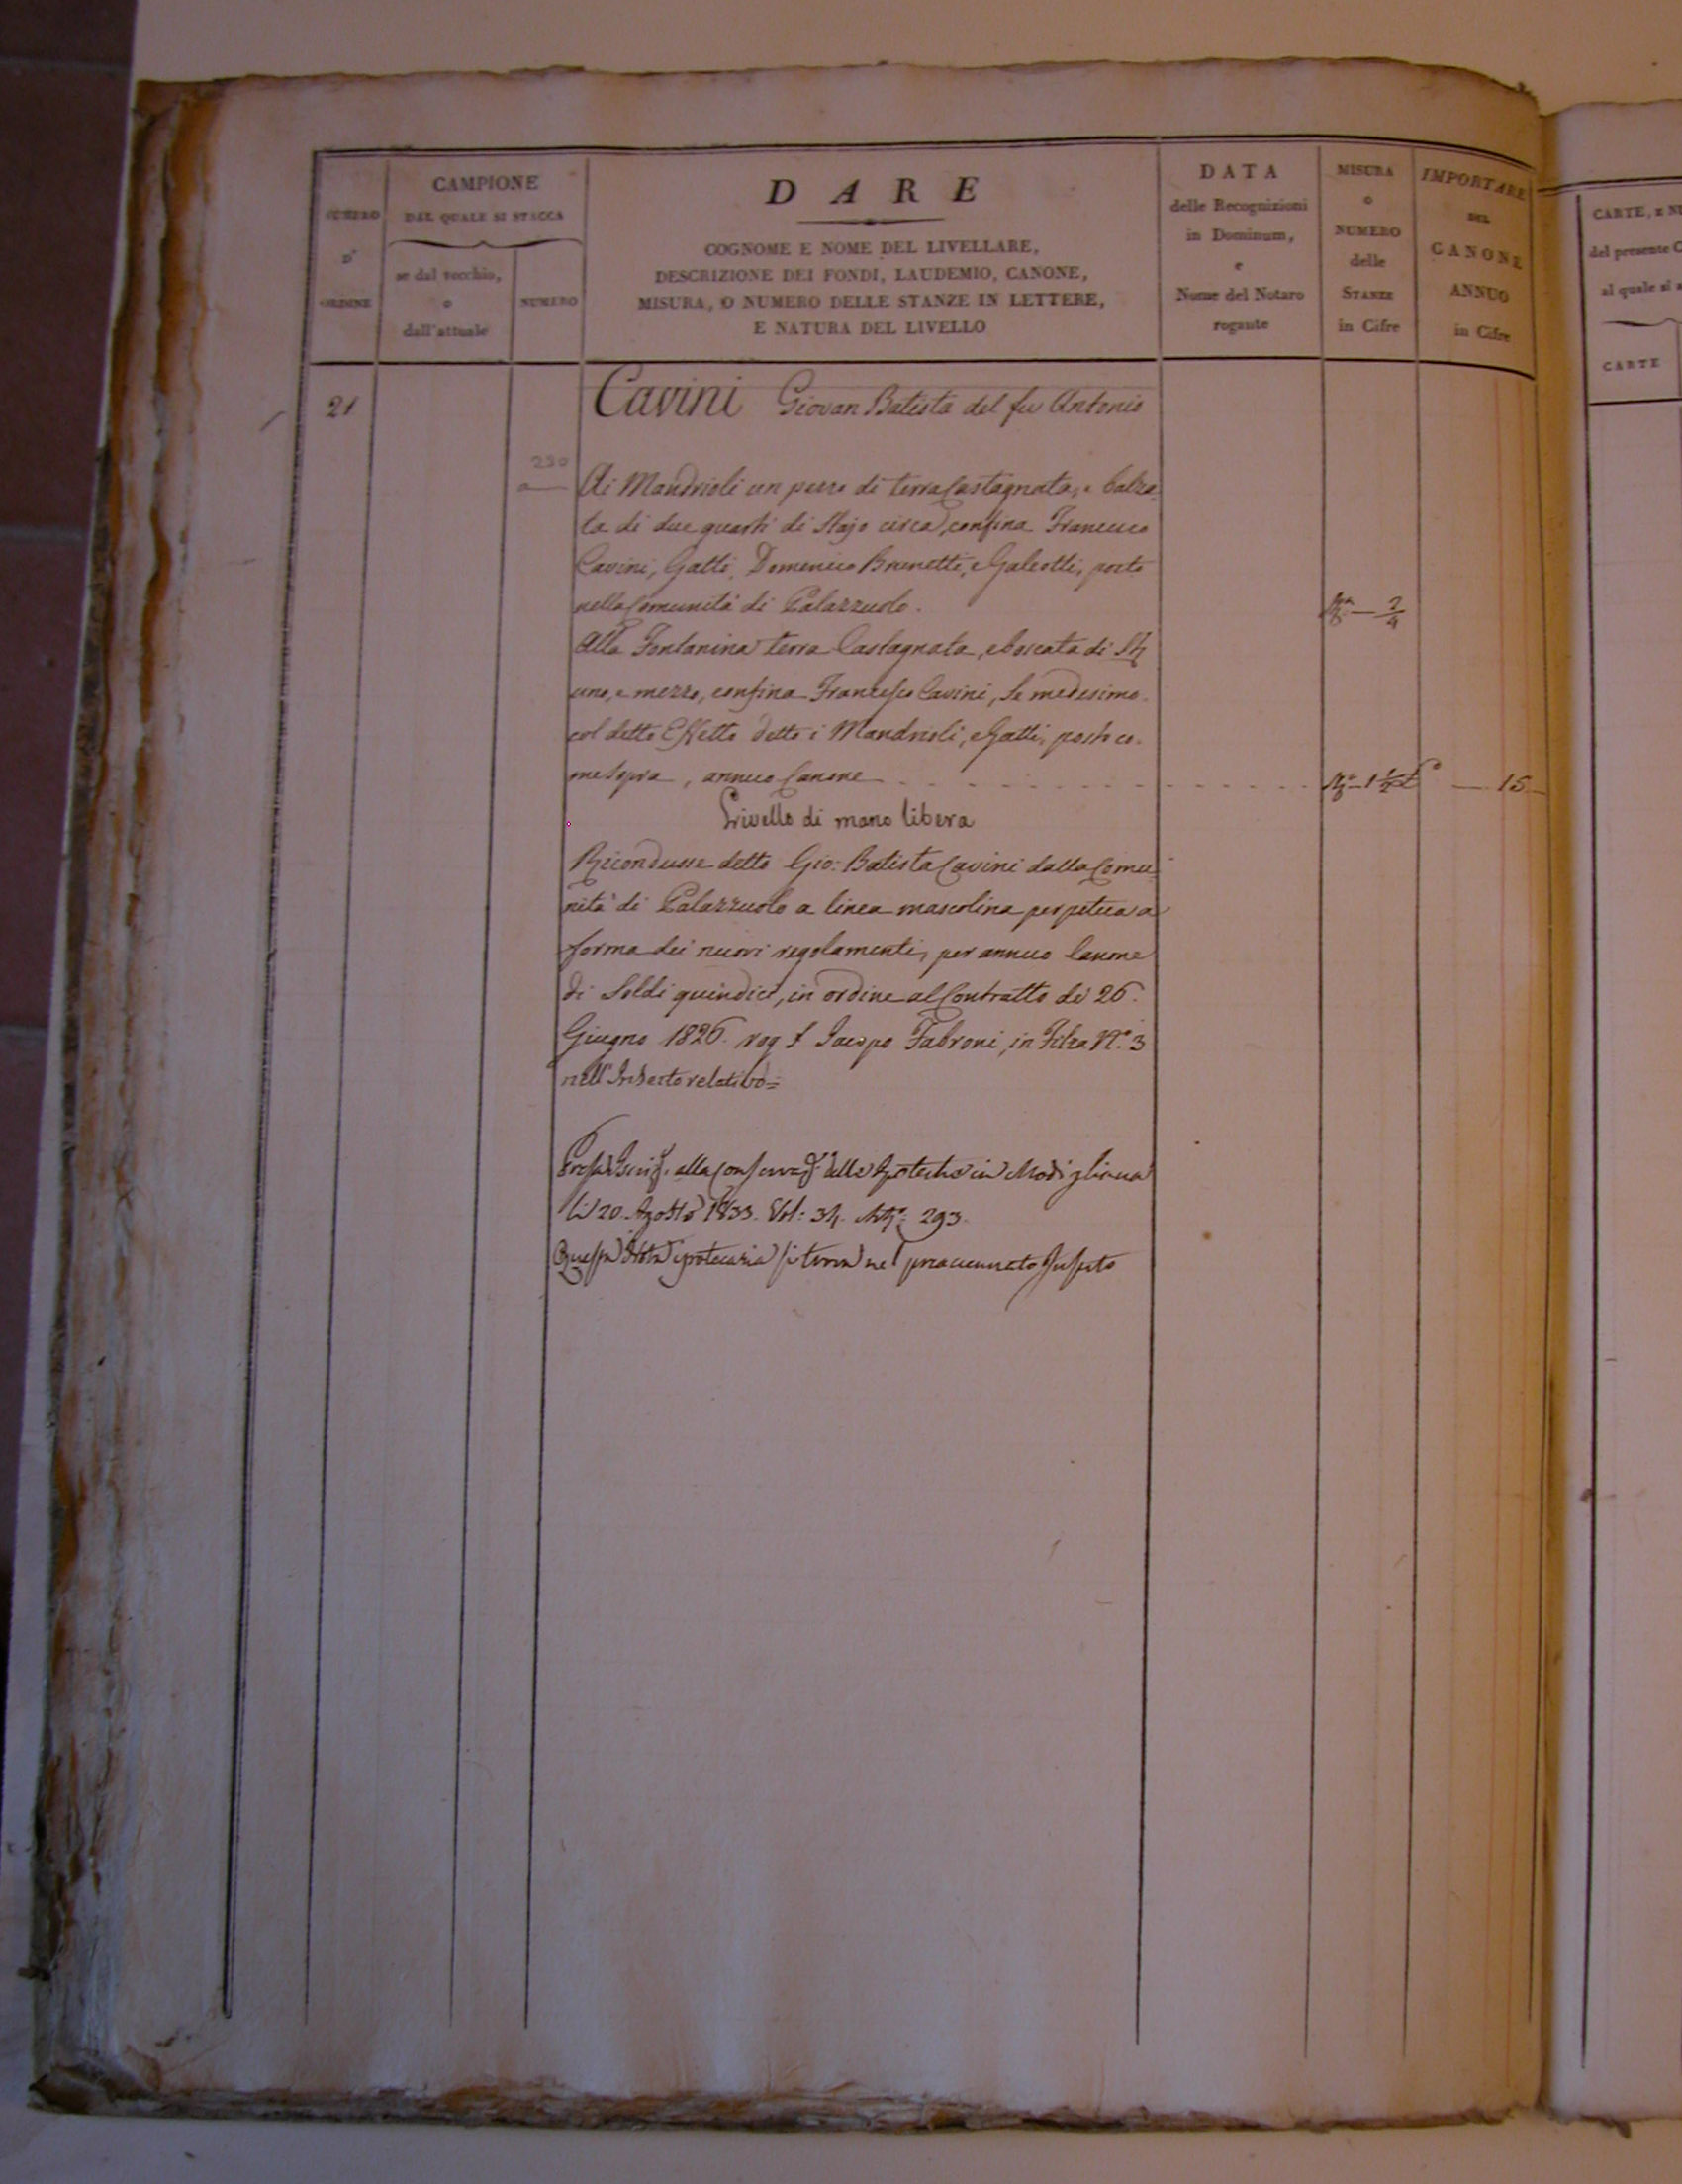 NUMERO
D'
ORDINE
CAMPIONE
DAL QUALE SI STACCA
se dal vecchio,
o
dall'attuale
NUMERO
DARE
COGNOME E NOME DEL LIVELLARE,
DESCRIZIONE DEI FONDI, LAUDEMIO, CANONE,
MISURA, O NUMERO DELLE STANZE IN LETTERE,
E NATURA DEL LIVELLO
DATA
delle Recognizioni
in Dominum,
e
Nome del Notaro
rogante
MISURA
o
NUMERO
delle
STANZE
in Cifre
IMPORTARE
DEL
CANONE
ANNUO
in Cifre
21
Cavini Giovan Batista del fu Antonio
230
Ai Mandrioli un pezzo di terra Castagnata, e balza-
ta di due quarti di Stajo circa, confina Francesco
Cavini, Gatti, Domenico Brunetti, e Galeotti, posto
nella Comunità di Palazzuolo.
2/4
Alla Fontanina terra Castagnata, e boscata di St
uno, e mezzo, confina Francesco Cavini, Se medesimo
col detto Effetto detto i Mandrioli, e Gatti, posto co-
me sopra, annuo Canone
1 1/2 £ — 15 —
Livello di mano libera
Ricondusse detto Gio: Batista Cavini dalla Comu-
nità di Palazzuolo a linea mascolina perpetua a
forma dei nuovi regolamenti, per annuo Canone
di Soldi quindici, in ordine al Contratto de' 26.
Giugno 1826. rog Jacopo Fabroni, in Filza N.° 3
nell'Inserto relativo=
Presa Iscriz. alla Conservaz. delle Ipoteche in Modigliana
li 20. Agosto 1833. Vol: 34. Art.: 293.
Questa Nota ipotecaria si trova nel preaccennato Inserto
CARTE, E NU
del presente C
al quale si a
CARTE